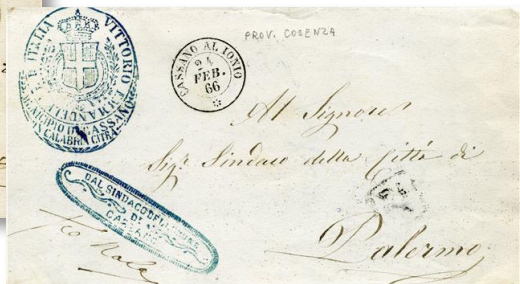 PROV. COSENZA
VITTORIO EMANUELE II RE D'ITALIA
MUNICIPIO DI CASSANO
IN CALABRIA CITRA
CASSANO AL IONIO
24
FEB.
66
Al Signore
Sigr. Sindaco della Città di
Palermo
DAL SINDACO DEL COMUNE
DI
CASSANO